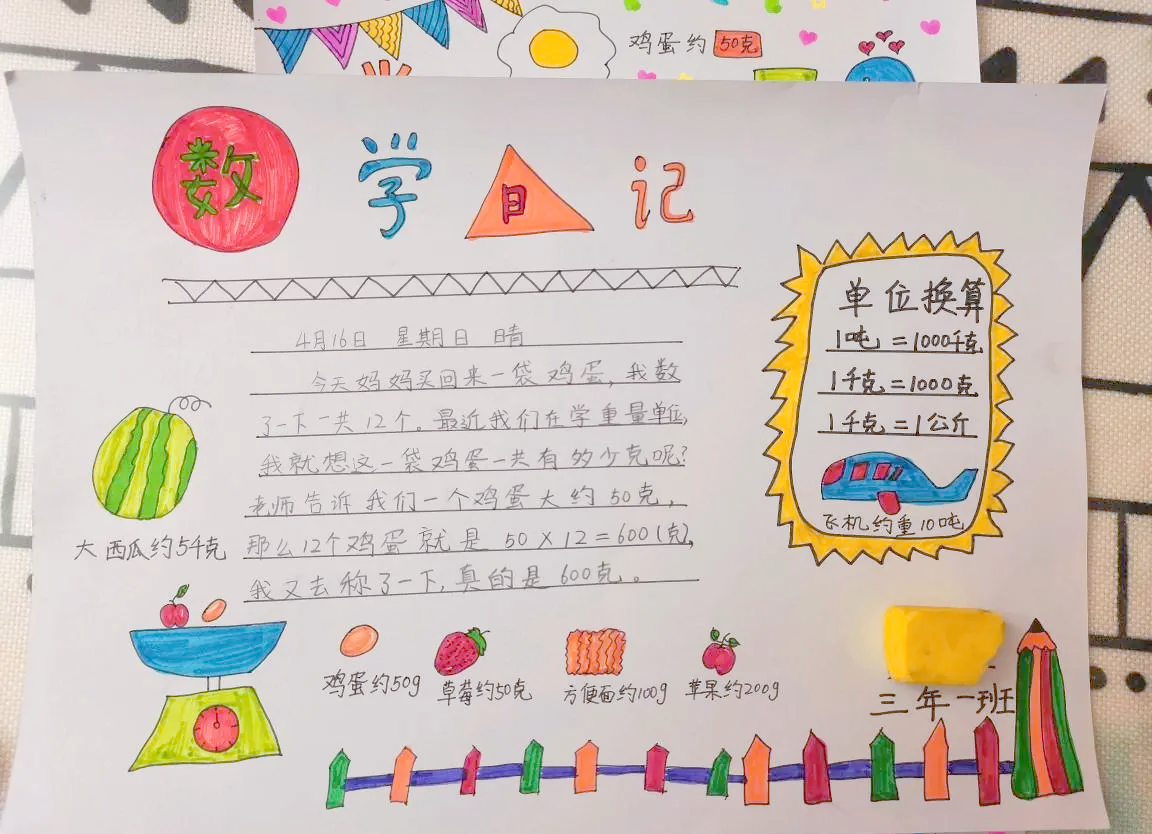 鸡蛋约 50克
数学日记
4月16日 星期日 晴
今天妈妈买回来一袋鸡蛋,我数
了一下一共12个。最近我们在学重量单位,
我就想这一袋鸡蛋一共有多少克呢?
老师告诉我们一个鸡蛋大约50克,
那么12个鸡蛋就是50×12=600(克),
我又去称了一下,真的是600克。
单位换算
1吨=1000千克
1千克=1000克
1千克=1公斤
飞机约重10吨
大西瓜约5千克
鸡蛋约50g
草莓约50克
方便面约100g
苹果约200g
三年一班